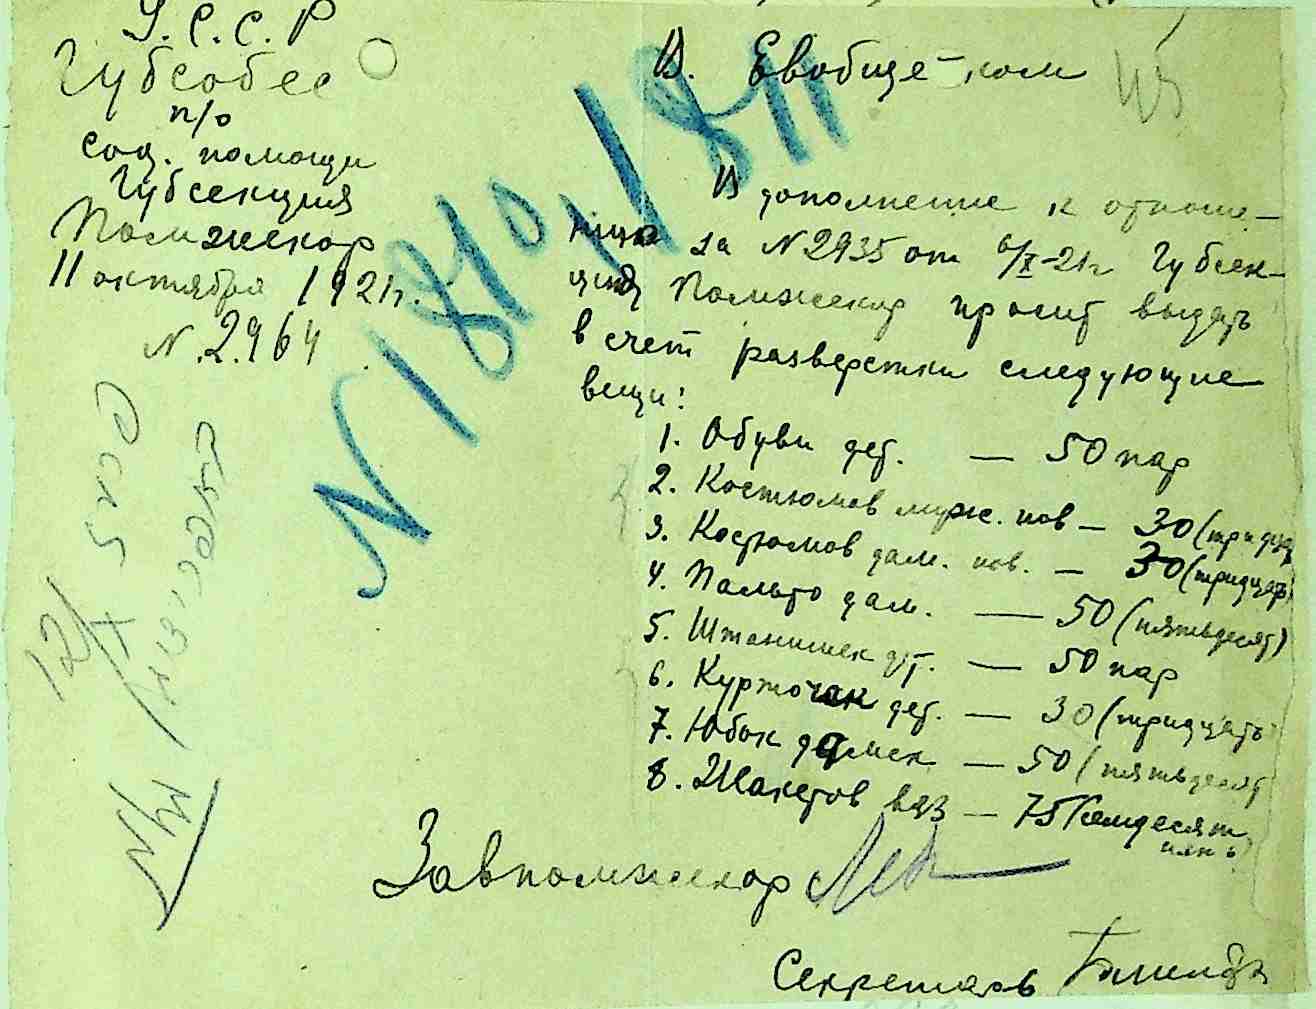 У.С.С.Р
Губсобес
п/о
Соц. помощи
Губсекция
Помжекор
11 октября 1921 г.
N. 2964
N 1810, 1811
В. Евобще-ком
В дополнение к отноше-
нию за N 2935 от 6/X-21 г Губсек-
ция Помжекор просит выдать
в счет разверстки следующие
вещи:
1. Обуви дет. — 50 пар
2. Костюмов муж. нов — 30 (тридцат
3. Костюмов дам. нов. — 30 (тридцать)
4. Пальто дам. — 50 (пятьдесят)
5. Штанишек дет. — 50 пар
6. Курточек дет. — 30 (тридцать)
7. Юбок дамск — 50 (пятьдесят
8. Жакетов вяз — 75 (семдесят
пять)
Завпомжекор
Секретарь
12/X